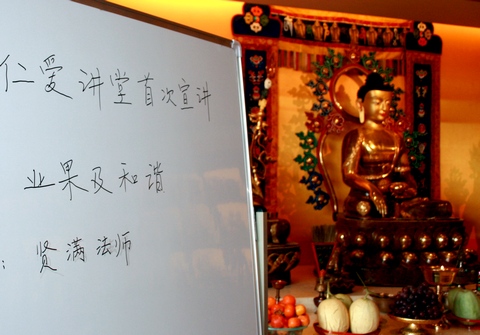 仁爱讲堂首次宣讲
业果及和谐
：贤满法师